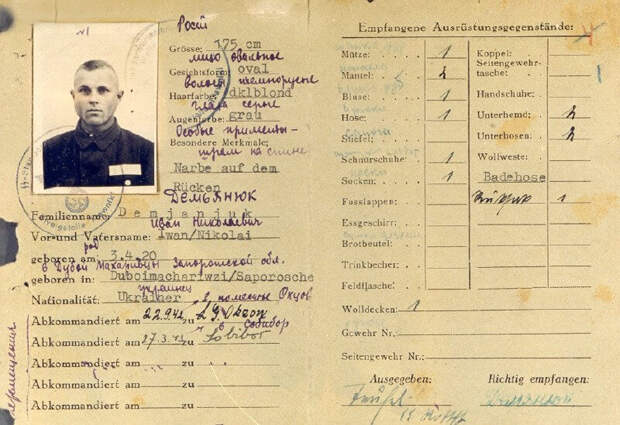 Рост
Grösse: 175 cm
лицо овальное
Gesichtsform: oval
волосы темнорусые
Haarfarbe: dklblond
глаза серые
Augenfarbe: grau
Особые приметы -
Besondere Merkmale:
шрам на спине
Narbe auf dem
Rücken
Демьянюк
Familienname: Demjanjuk
Иван Николаевич
Vor- und Vatersname: Iwan/Nikolai
род
geboren am: 3.4.20
Запорожской обл.
geboren in: Duboimachariwzi/Saporosche
украинец
Nationalität: Ukrainer
Abkommandiert am 22.9.42 zu L.G. Okzow
в Собибор
Abkommandiert am 27.3.43 zu Sobibor
Abkommandiert am zu
Abkommandiert am zu
Abkommandiert am zu
Empfangene Ausrüstungsgegenstände:
Mütze: 1
Mantel: 2
Bluse: 1
Hose: 1
Stiefel:
Schnürschuhe: 1
Socken: 1
Fusslappen:
Essgeschirr:
Brotbeutel:
Trinkbecher:
Feldflasche:
Wolldecken: 1
Gewehr Nr.
Seitengewehr Nr.:
Koppel:
Seitengewehr-
tasche:
Handschuhe:
Unterhemd: 2
Unterhosen: 2
Wollweste:
Badehose
1
Ausgegeben: Richtig empfangen: